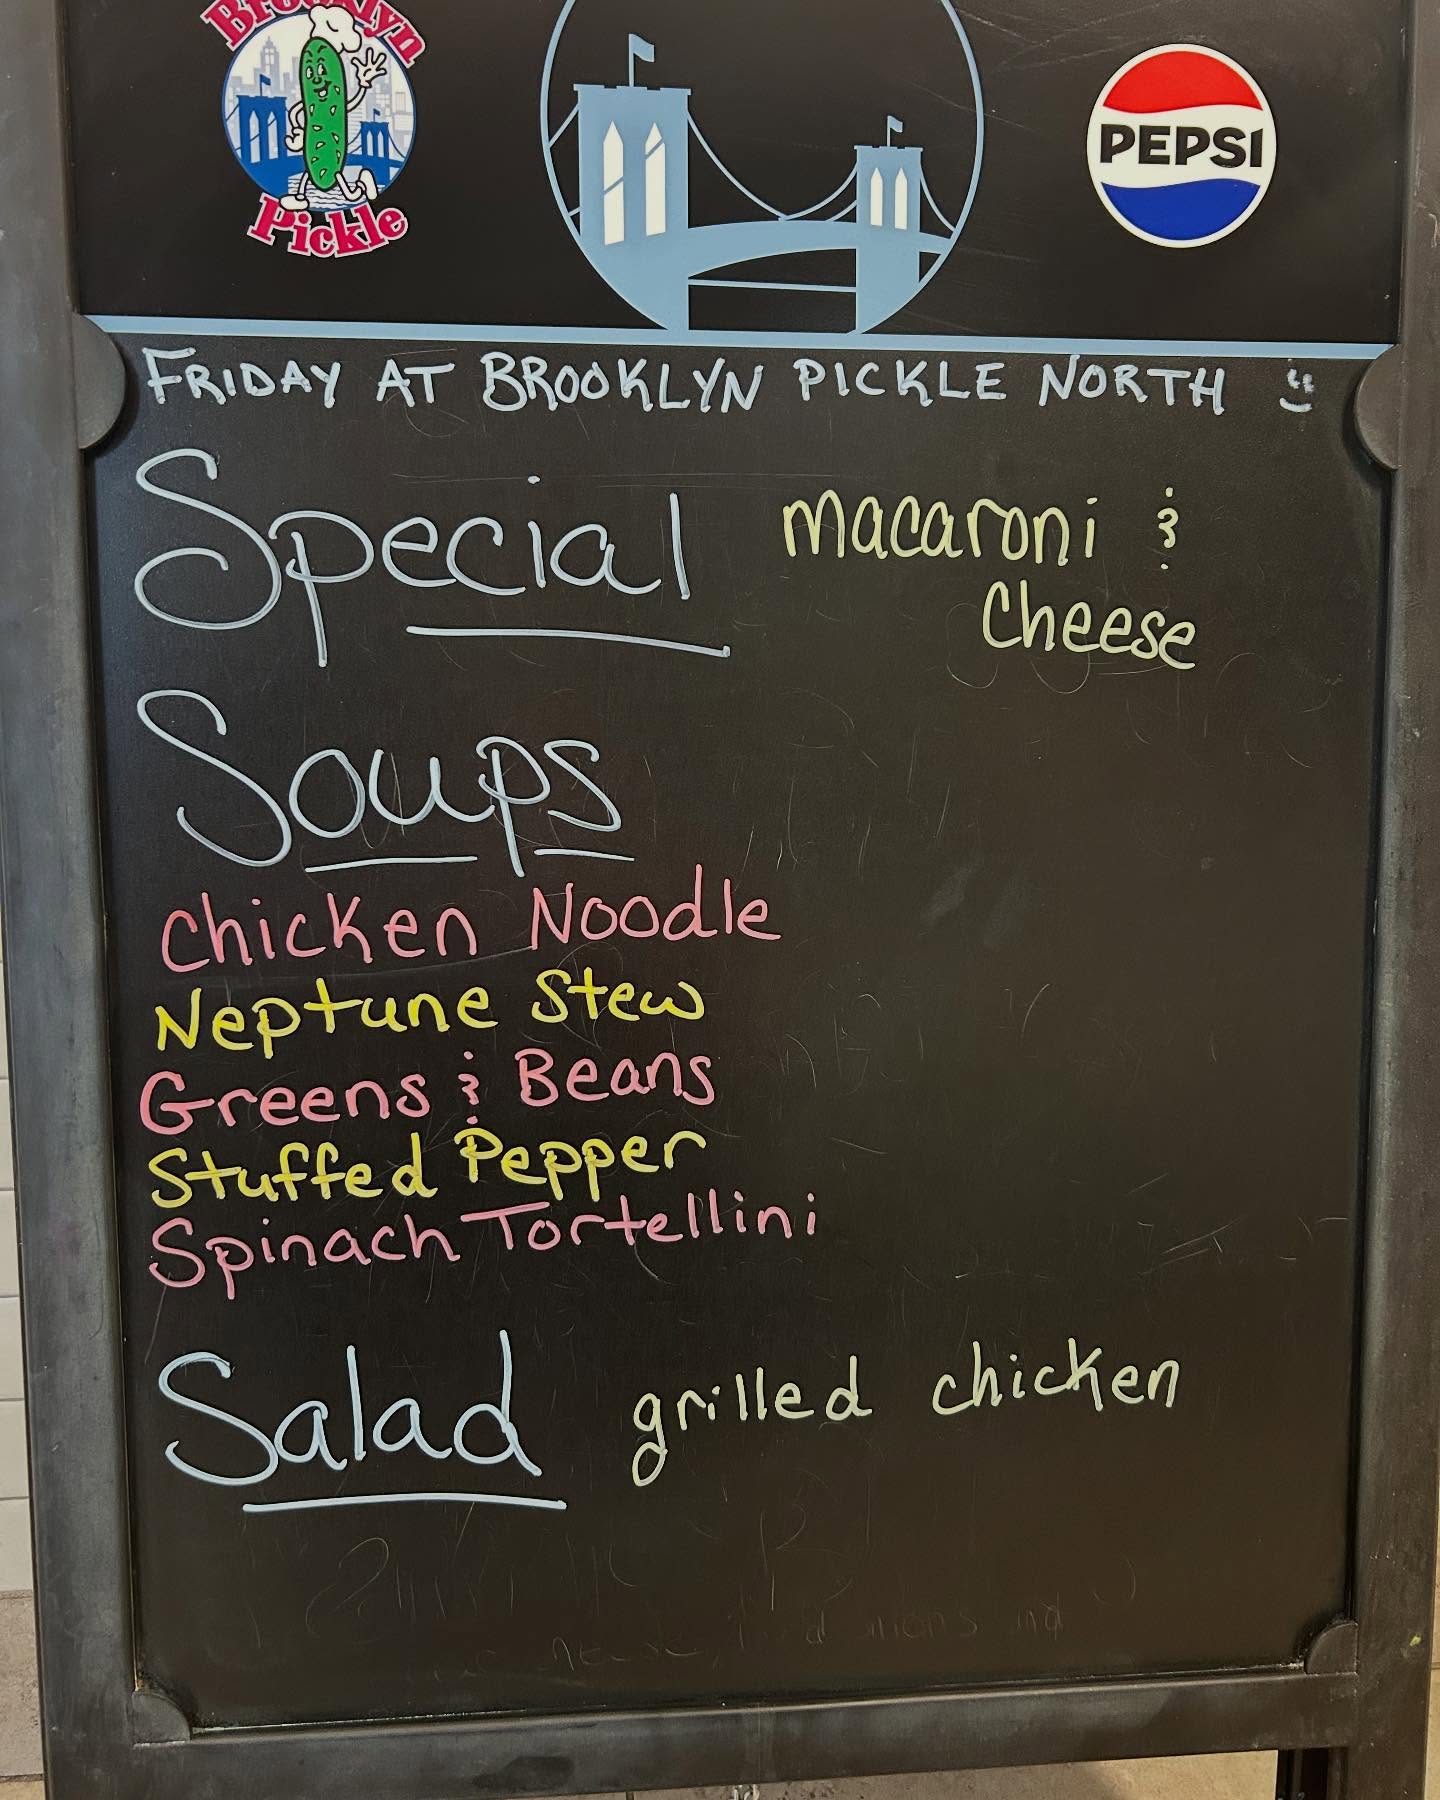 Brooklyn
Pickle
PEPSI
FRIDAY AT BROOKLYN PICKLE NORTH
Special macaroni & Cheese
Soups
Chicken Noodle
Neptune Stew
Greens & Beans
Stuffed Pepper
Spinach Tortellini
Salad grilled chicken